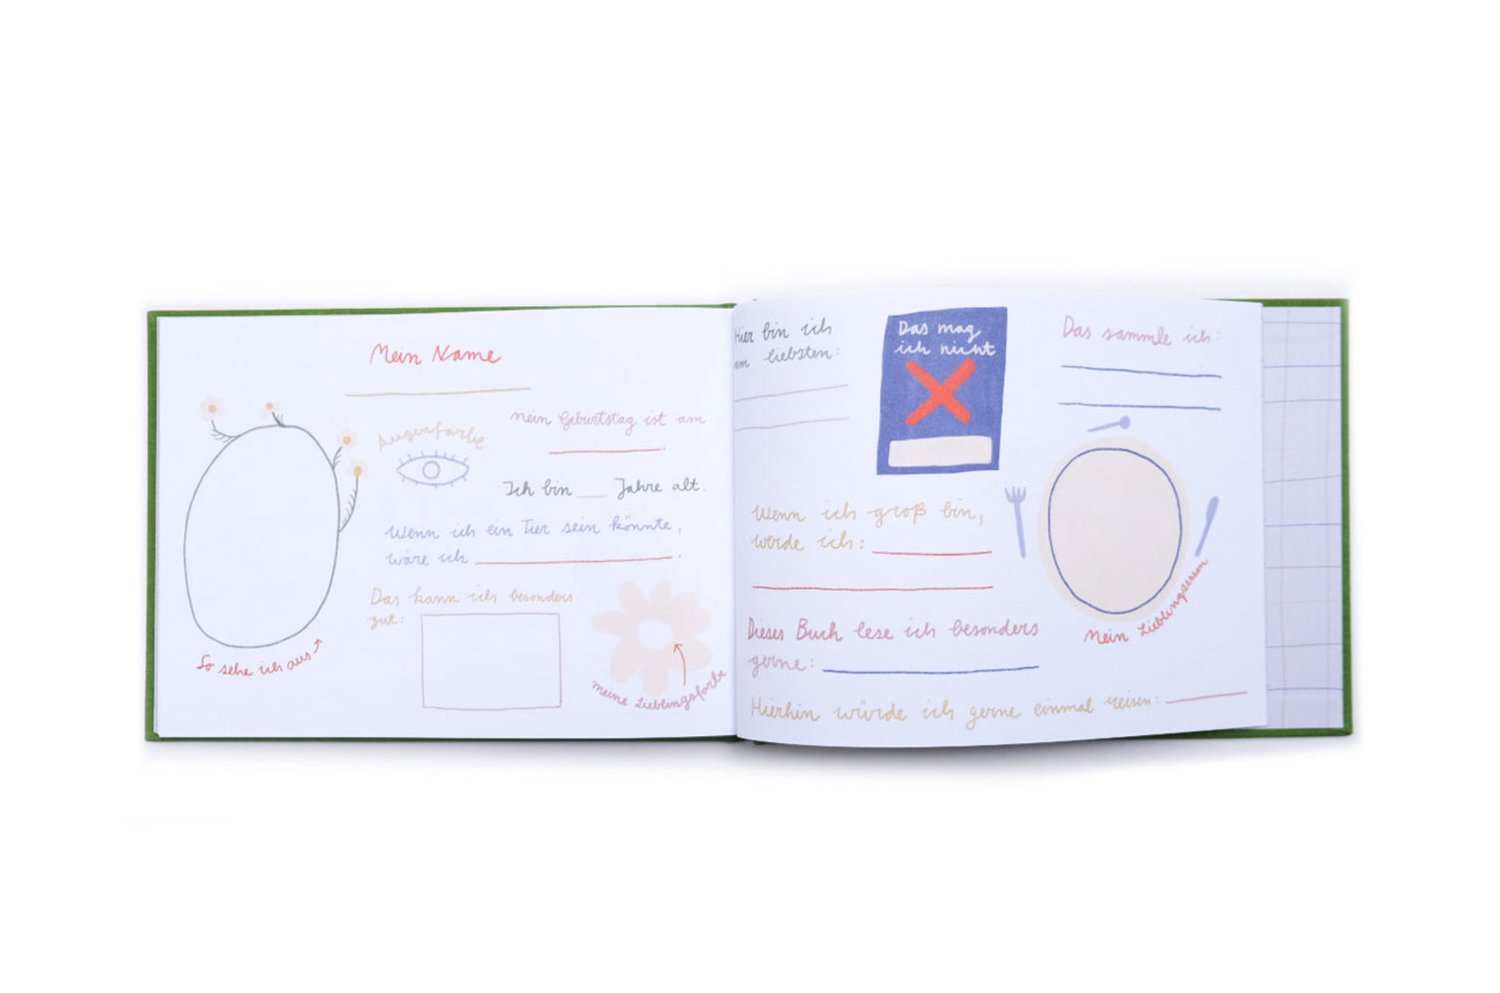 Mein Name
Augenfarbe
Mein Geburtstag ist am
.
Ich bin ___ Jahre alt.
Wenn ich ein Tier sein könnte,
wäre ich ___.
Das kann ich besonders
gut:
So sehe ich aus
meine Lieblingsfarbe
Hier bin ich
am liebsten:
Das mag
ich nicht
Das sammle ich:
Wenn ich groß bin,
werde ich:
Mein Lieblingsessen
Dieses Buch lese ich besonders
gerne:
Hierhin würde ich gerne einmal reisen: